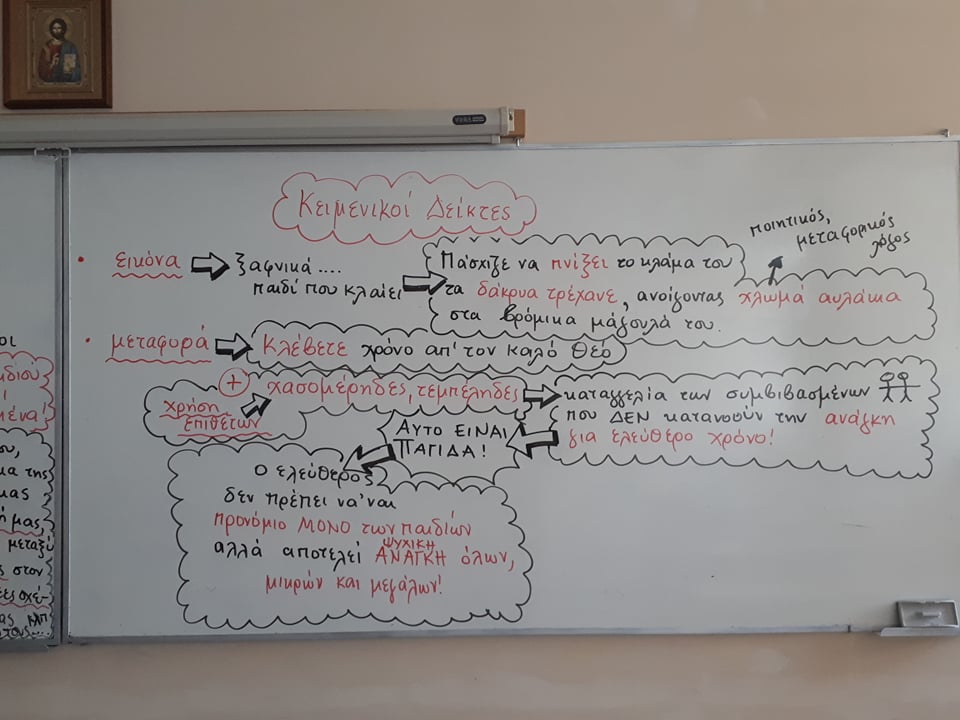 Κειμενικοί Δείκτες
• εικόνα ⇨ ξαφνικά ....
παιδί που κλαίει ⇨
Πάσχιζε να πνίξει το κλάμα του
τα δάκρυα τρέχανε, ανοίγοντας χλωμά αυλάκια
στα βρόμικα μάγουλά του.
ποιητικός,
μεταφορικός
λόγος
• μεταφορά ⇨ Κλέβετε χρόνο απ' τον καλό Θεό
+ χασομέρηδες, τεμπέληδες ⇨
χρήση
επιθέτων
καταγγελία των συμβιβασμένων
που ΔΕΝ κατανοούν την ανάγκη
για ελεύθερο χρόνο!
ΑΥΤΟ ΕΙΝΑΙ
ΠΑΓΙΔΑ!
Ο ελεύθερος
δεν πρέπει να'ναι
προνόμιο ΜΟΝΟ των παιδιών
ΨΥΧΙΚΗ
αλλά αποτελεί ΑΝΑΓΚΗ όλων,
μικρών και μεγάλων!
οι
ιδίου
!
μένα!
ου,
μα της
μας
ή μας,
μεταξύ
ς στον